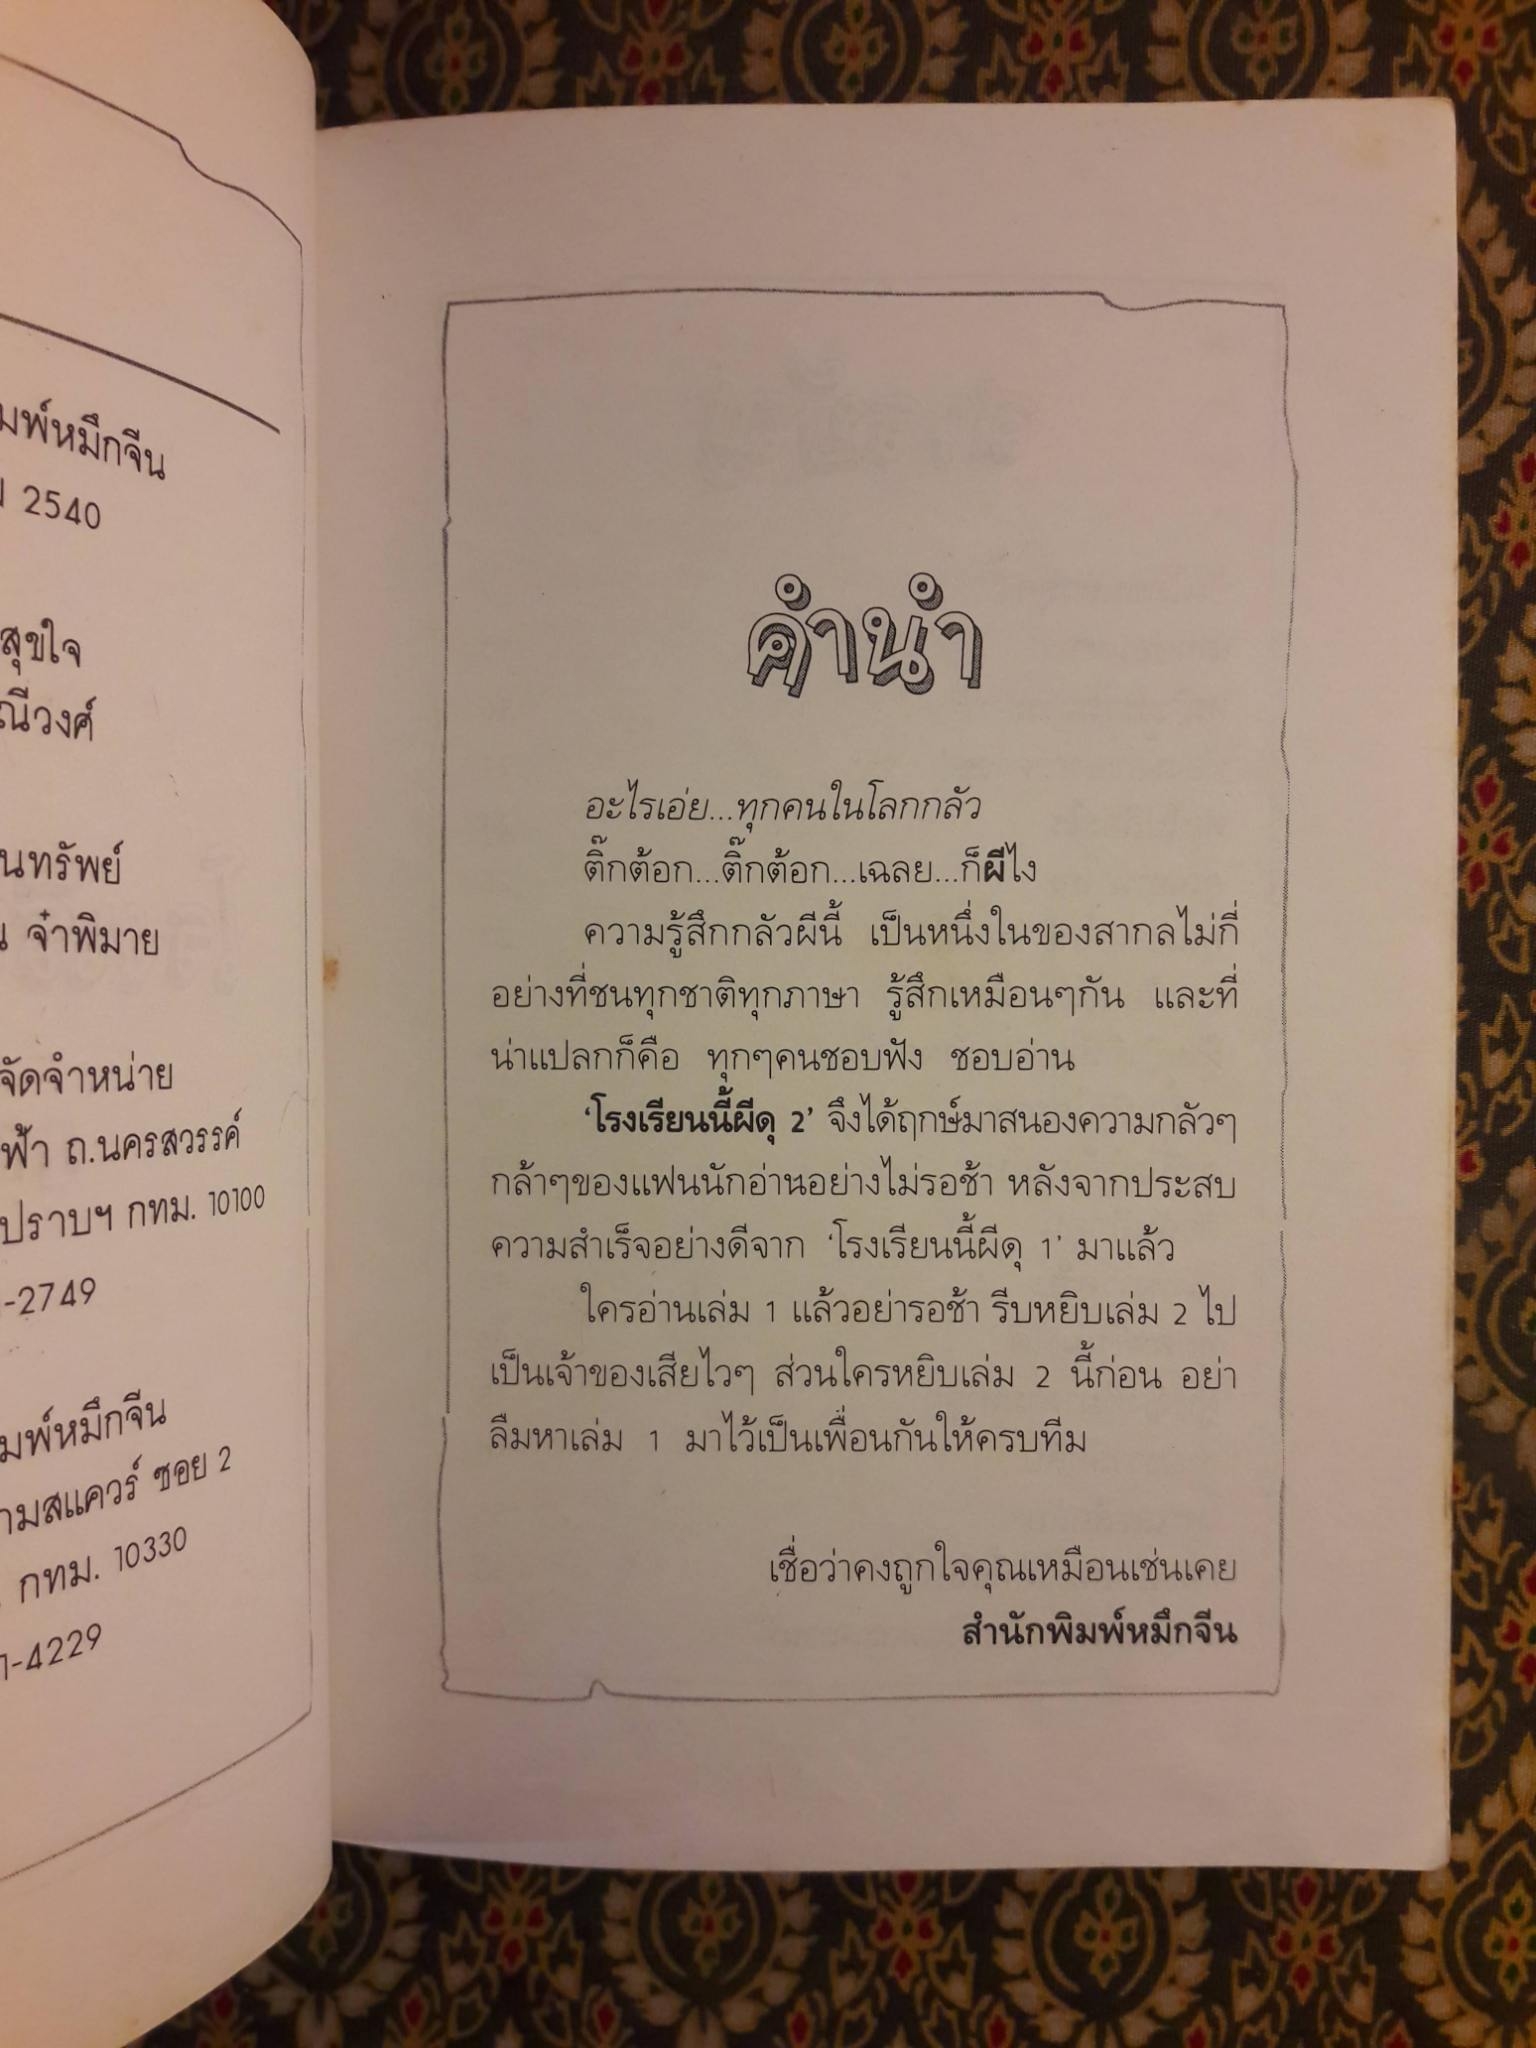 มพ์หมึกจีน
2540
สุขใจ
ณีวงศ์
นทรัพย์
จำพิมาย
จัดจำหน่าย
ฟ้า ถ.นครสวรรค์
ปราบฯ กทม. 10100
-2749
มพ์หมึกจีน
ามสแควร์ ซอย 2
กทม. 10330
-4229
คำนำ
อะไรเอ่ย...ทุกคนในโลกกลัว
ติ๊กต้อก...ติ๊กต้อก...เฉลย...ก็ผีไง
ความรู้สึกกลัวผีนี้ เป็นหนึ่งในของสากลไม่กี่
อย่างที่ชนทุกชาติทุกภาษา รู้สึกเหมือนๆกัน และที่
น่าแปลกก็คือ ทุกๆคนชอบฟัง ชอบอ่าน
‘โรงเรียนนี้ผีดุ 2’ จึงได้ฤกษ์มาสนองความกลัวๆ
กล้าๆของแฟนนักอ่านอย่างไม่รอช้า หลังจากประสบ
ความสำเร็จอย่างดีจาก ‘โรงเรียนนี้ผีดุ 1’ มาแล้ว
ใครอ่านเล่ม 1 แล้วอย่ารอช้า รีบหยิบเล่ม 2 ไป
เป็นเจ้าของเสียไวๆ ส่วนใครหยิบเล่ม 2 นี้ก่อน อย่า
ลืมหาเล่ม 1 มาไว้เป็นเพื่อนกันให้ครบทีม
เชื่อว่าคงถูกใจคุณเหมือนเช่นเคย
สำนักพิมพ์หมึกจีน